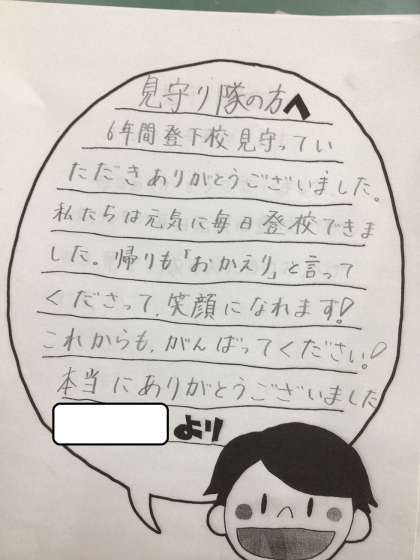 見守り隊の方へ
6年間登下校見守ってい
ただきありがとうございました。
私たちは元気に毎日登校できま
した。帰りも「おかえり」と言って
くださって、笑顔になれます!
これからも、がんばってください!
本当にありがとうございました
より